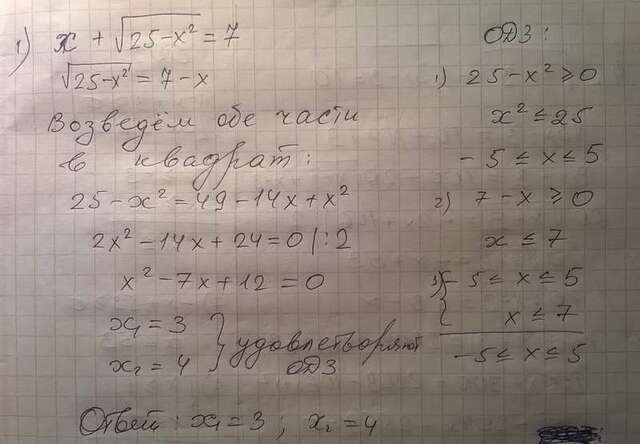 1) x + √25-x² = 7
√25-x² = 7-x
Возведём обе части
в квадрат:
25-x²=49-14x+x²
2x²-14x+24=0 |:2
x²-7x+12=0
x₁=3
x₂=4
} удовлетворяют
ОДЗ
Ответ: x₁=3; x₂=4
ОДЗ:
1) 25-x²≥0
x²≤25
-5≤x≤5
2) 7-x≥0
x≤7
3) { -5≤x≤5
x≤7
-5≤x≤5